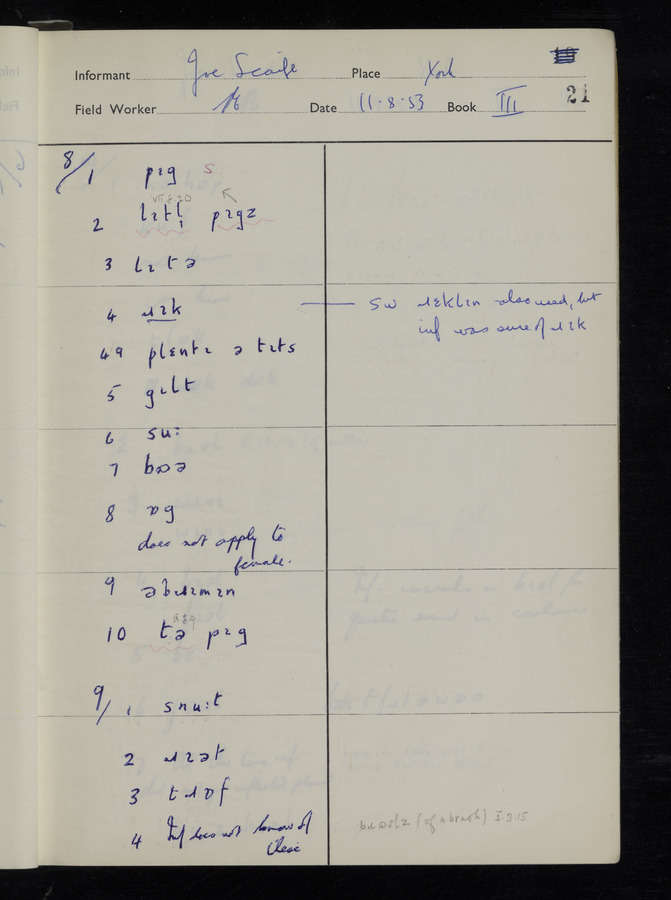 Informant Joe Scaife Place York
Field Worker Date 11·8·53 Book III 21
8/1 pɪg S.
2 lɪtl̩ pɪgz
3 lɪtə
4 ɹɪk — SW ɹɛklɪn also used, but
inf was sure of ɹɪk
4a plɛntɪ ə tɪts
5 gɪlt
6 su:
7 bɔə
8 ɒg
does not apply to
female.
9 əbɹɪmɪn
10 tə pɪg
9/1 snu:t
2 ɹɪət
3 tɹɒf
4 Inf does not know of
these
(of a brush) I.3.15